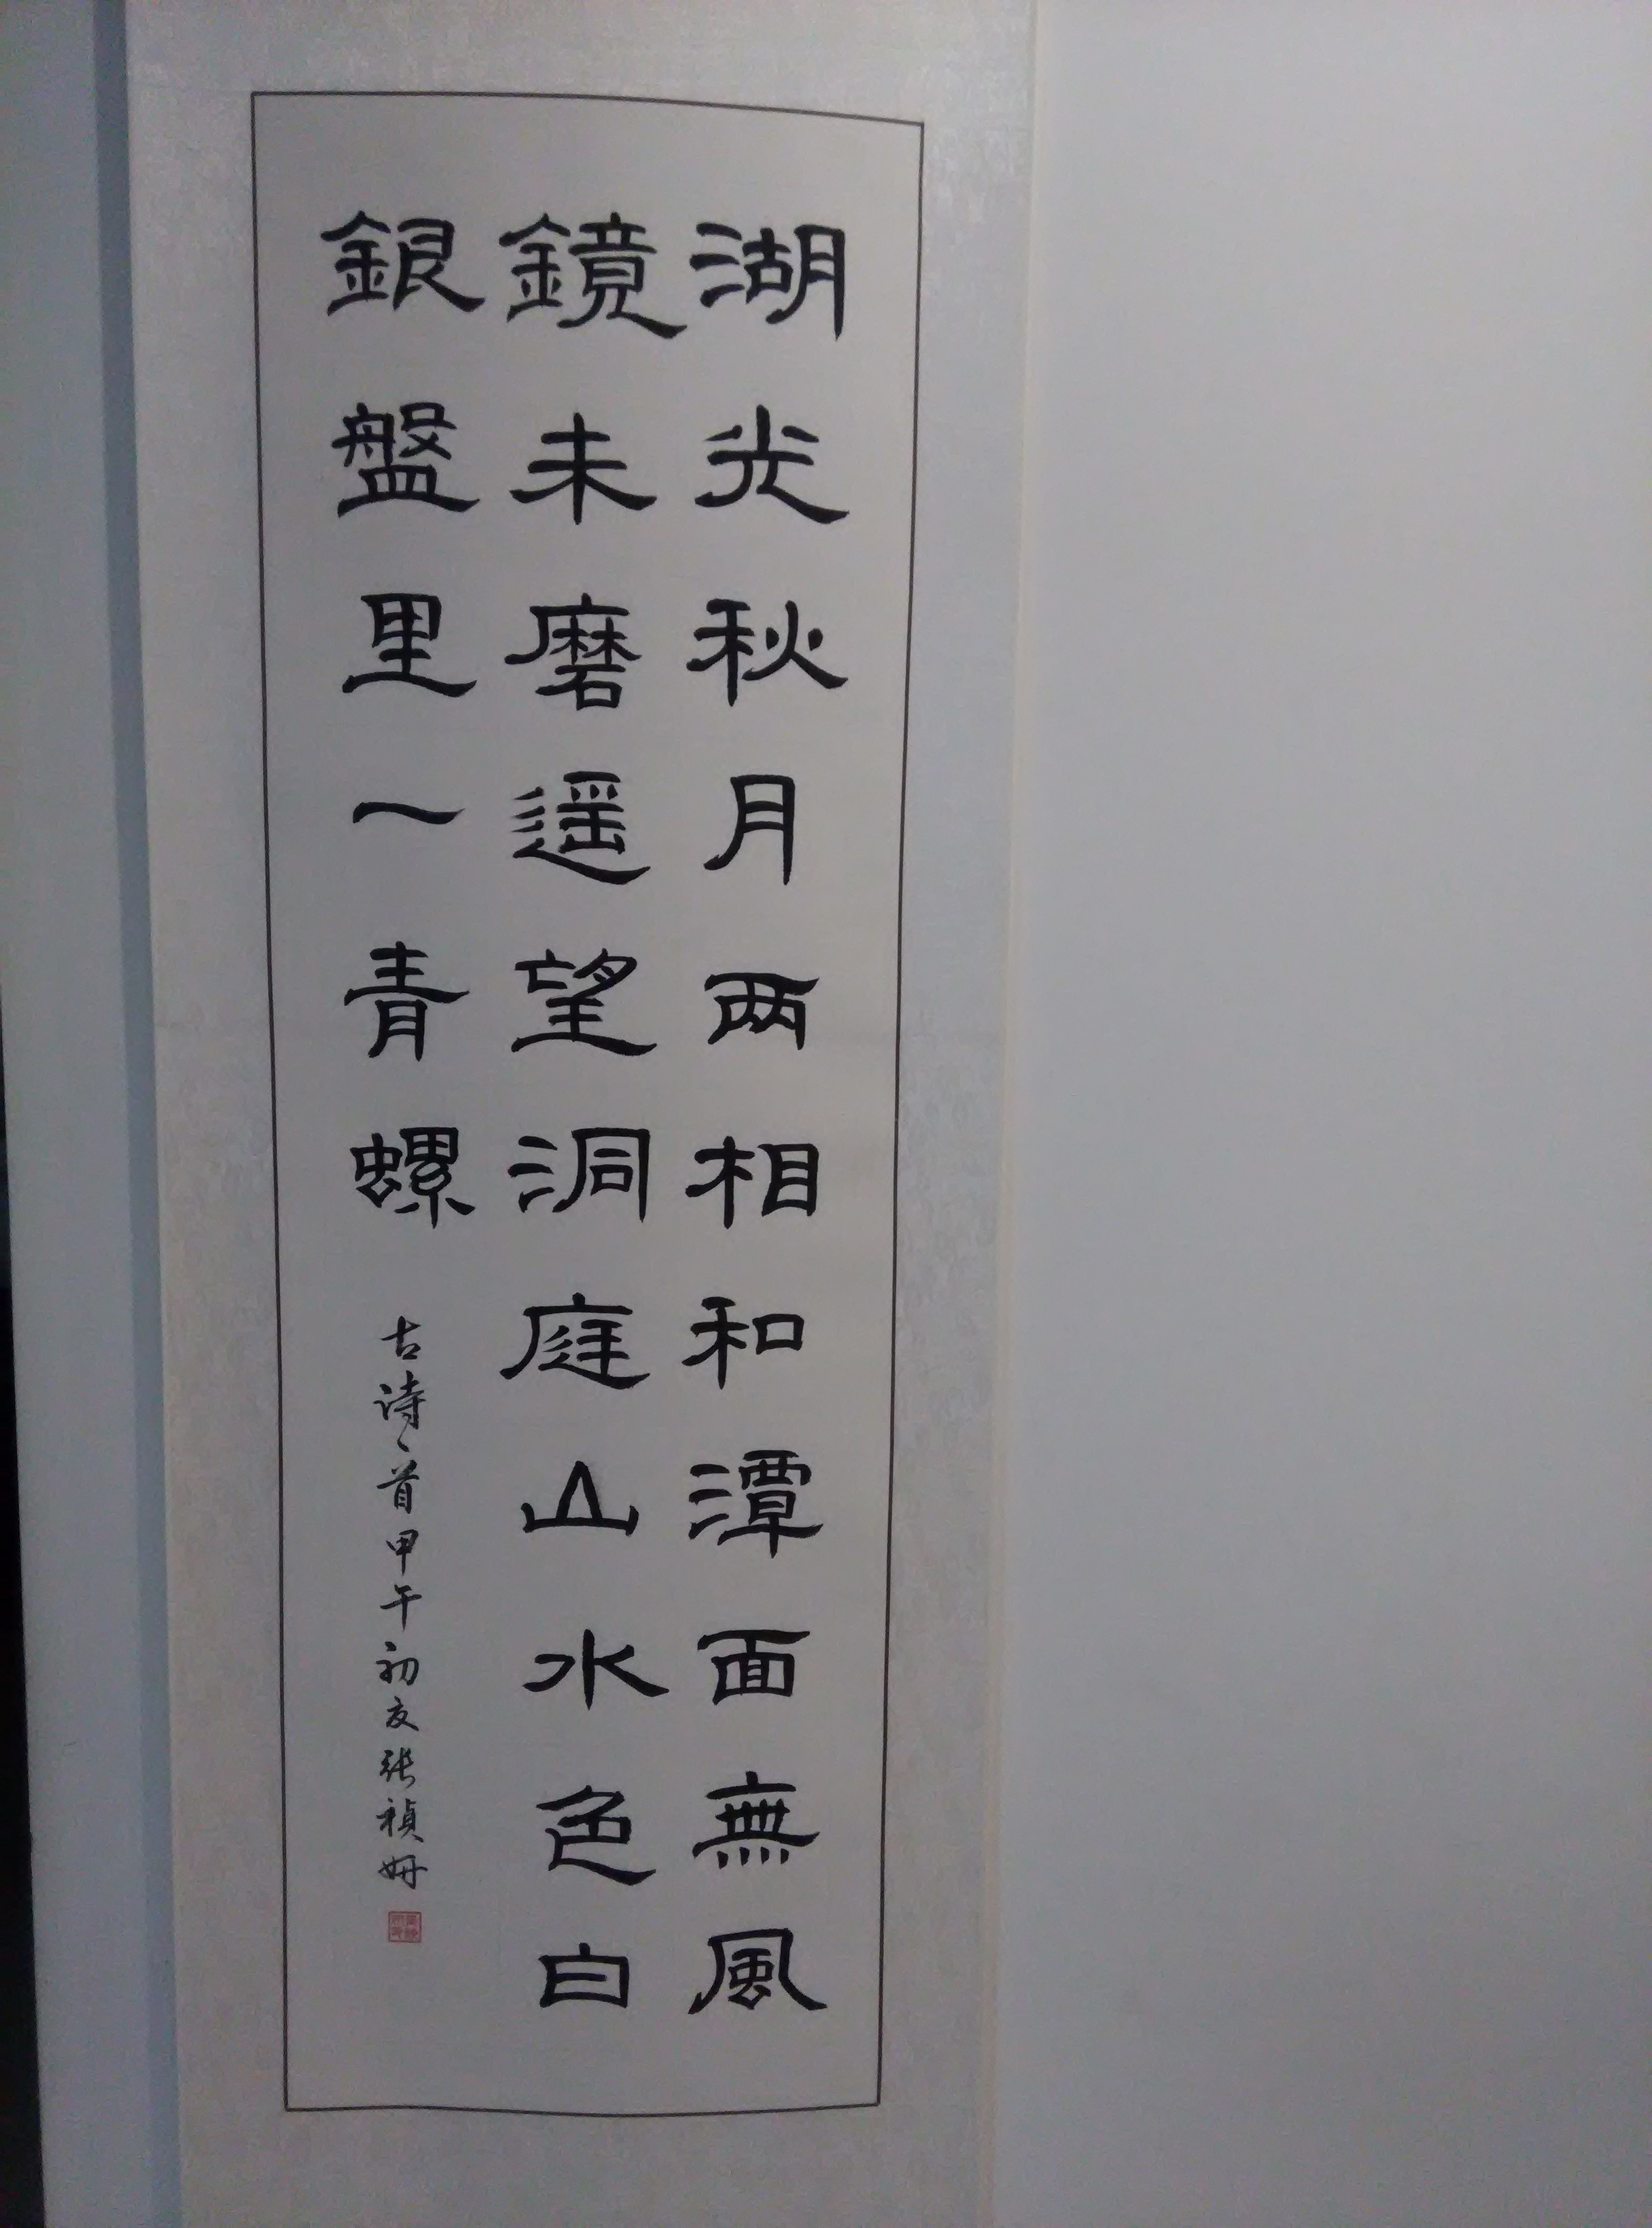 湖光秋月两相和潭面無風
鏡未磨遥望洞庭山水色白
銀盤里一青螺
古诗一首甲午初夏张祯姗